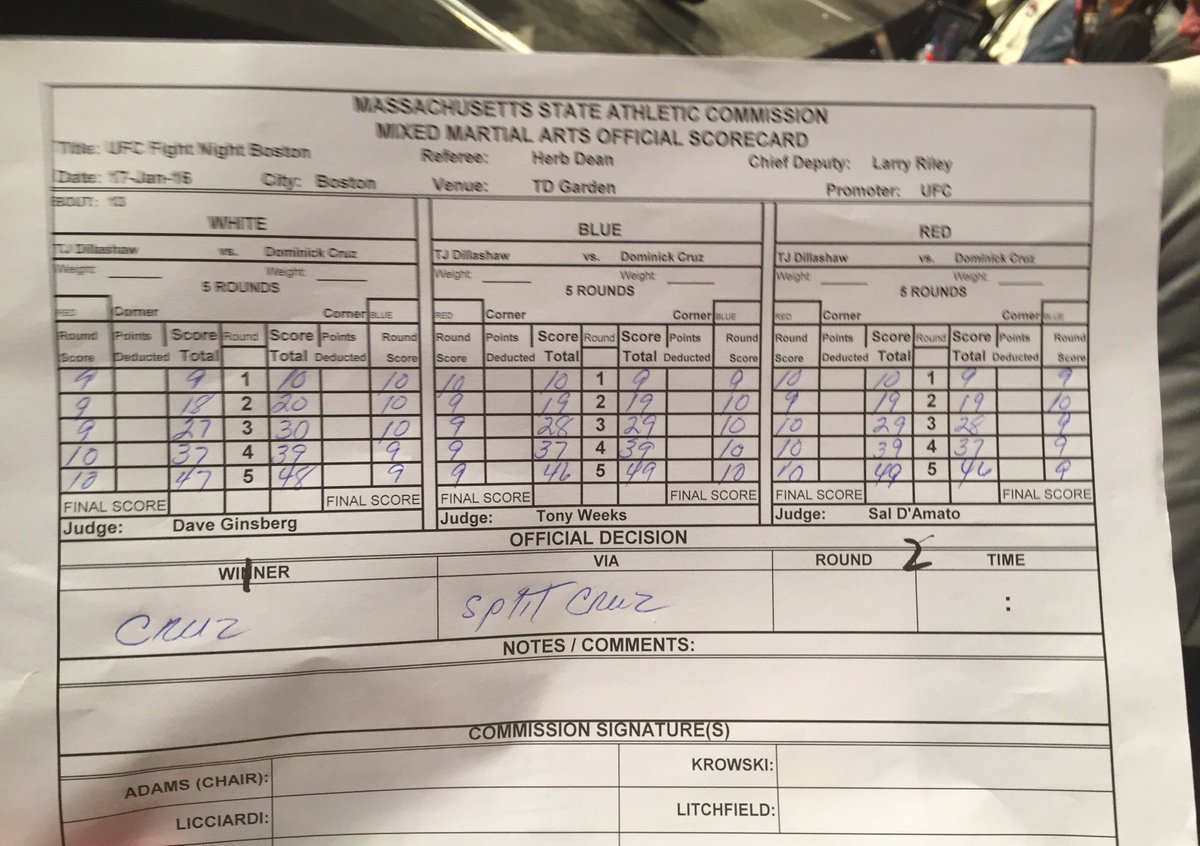 MASSACHUSETTS STATE ATHLETIC COMMISSION
MIXED MARTIAL ARTS OFFICIAL SCORECARD
Title: UFC Fight Night Boston Referee: Herb Dean Chief Deputy: Larry Riley
Date: 17-Jan-16 City: Boston Venue: TD Garden Promoter: UFC
BOUT: 13
WHITE BLUE RED
TJ Dillashaw vs. Dominick Cruz TJ Dillashaw vs. Dominick Cruz TJ Dillashaw vs. Dominick Cruz
Weight: Weight: Weight: Weight: Weight: Weight:
5 ROUNDS 5 ROUNDS 5 ROUNDS
RED Corner Corner BLUE RED Corner Corner BLUE RED Corner Corner BLUE
Round Points Score Round Score Points Round Round Points Score Round Score Points Round Round Points Score Round Score Points Round
Score Deducted Total Total Deducted Score Score Deducted Total Total Deducted Score Score Deducted Total Total Deducted Score
9 9 1 10 10 10 10 1 9 9 10 10 1 9 9
9 18 2 20 10 9 19 2 19 10 9 19 2 19 10
9 27 3 30 10 9 28 3 29 10 10 29 3 28 9
10 37 4 39 9 9 37 4 39 10 10 39 4 37 9
10 47 5 48 9 9 46 5 49 10 10 49 5 46 9
FINAL SCORE FINAL SCORE FINAL SCORE FINAL SCORE FINAL SCORE FINAL SCORE
Judge: Dave Ginsberg Judge: Tony Weeks Judge: Sal D'Amato
OFFICIAL DECISION
WINNER VIA ROUND 2 TIME
Cruz split Cruz :
NOTES / COMMENTS:
COMMISSION SIGNATURE(S)
ADAMS (CHAIR): KROWSKI:
LICCIARDI: LITCHFIELD: